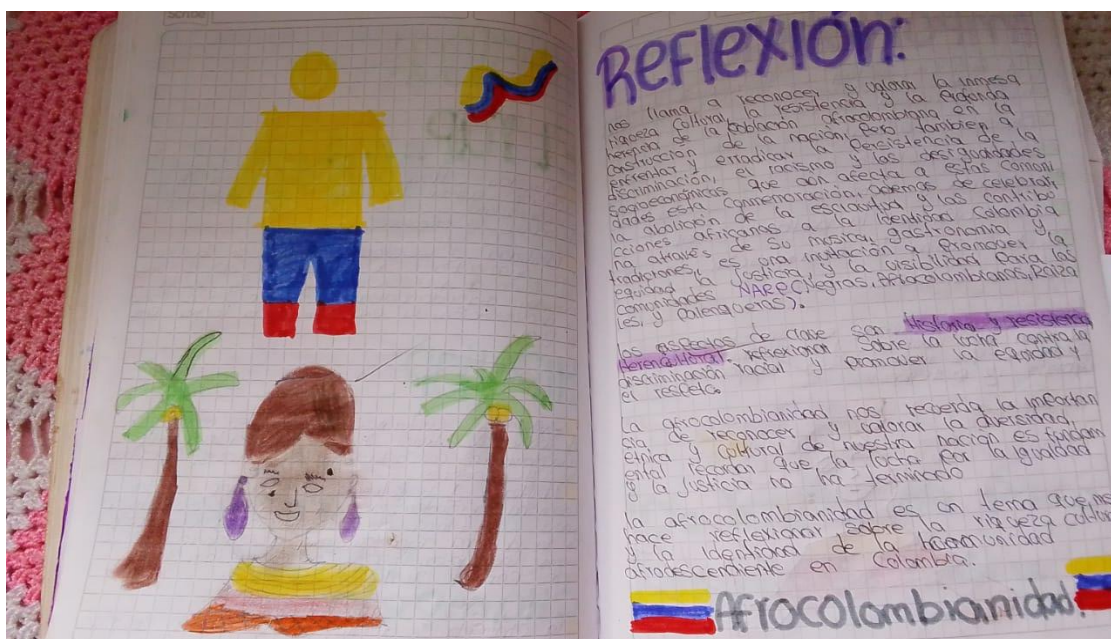 Scribe
Reflexión:
nos llama a reconocer y valorar la inmesa
riqueza cultural, la resistencia y la profunda
herencia de la población afrocolombiana en la
construcción de la nación, pero tambien a
enfrentar y erradicar la persistencia de la
discriminación, el racismo y las desigualdades
socioeconómicas que aún afecta a estas comuni
dades esta conmemoración, ademas de celebrar
la abolición de la esclavitud y las contribu
cciones africanas a la identidad colombia
na atraves de su musica, gastronomia y
tradiciones, es una invitación a promover la
equidad la justicia, y la visibilidad para las
comunidades NARP(Negras, Afrocolombianas, Raiza
les, y palenqueras).
los aspectos de clave son Historia y resistencia
reflexionar sobre la lucha contra la
discriminación racial y promover la equidad y
el respeto.
la afrocolombianidad nos recuerda la importan
sia de reconocer y valorar la diversidad,
étnica y cultural de nuestra nación es fundam
ental recordar que la lucha por la igualdad
y la justicia no ha terminado
la afrocolombianidad es un tema que me
hace reflexionar sobre la riqueza cultur
y la identidad de la comunidad
afrodescendiente en Colombia.
Afrocolombianidad